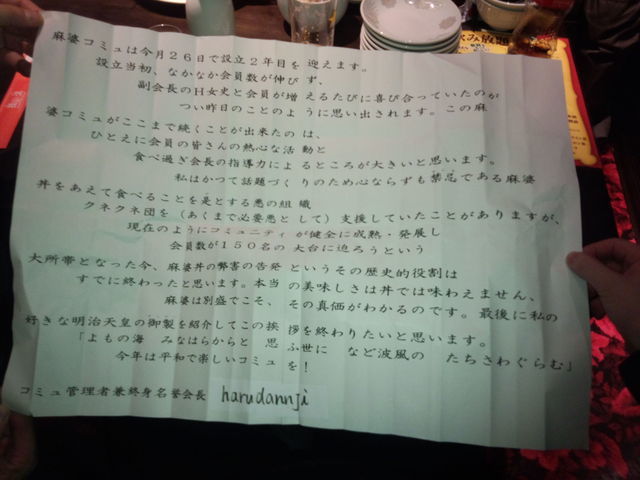 麻婆コミュは今月２６日で設立２年目を 迎えます。
設立当初、なかなか会員数が伸び ず、
副会長のＨ女史と会員が増 えるたびに喜び合っていたのが
つい昨日のことのよ うに思い出されます。この麻
婆コミュがここまで続くことが出来たの は、
ひとえに会員の皆さんの熱心な活 動と
食べ過ぎ会長の指導力によ るところが大きいと思います。
私はかつて話題づく りのため心ならずも禁忌である麻婆
丼をあえて食べることを是とする悪の組 織
クネクネ団を（あくまで必要悪と して）支援していたことがありますが、
現在のようにコミュニティ が健全に成熟・発展し
会員数が１５０名の 大台に迫ろうという
大所帯となった今、麻婆丼の弊害の告発 というその歴史的役割は
すでに終わったと思います。本当 の美味しさは丼では味わえません、
麻婆は別盛でこそ、 その真価がわかるのです。最後に私の
好きな明治天皇の御製を紹介してこの挨 拶を終わりたいと思います。
「よもの海 みなはらからと 思 ふ世に など波風の たちさわぐらむ」
今年は平和で楽しいコミュ を！
コミュ管理者兼終身名誉会長 harudannji
飲み放題